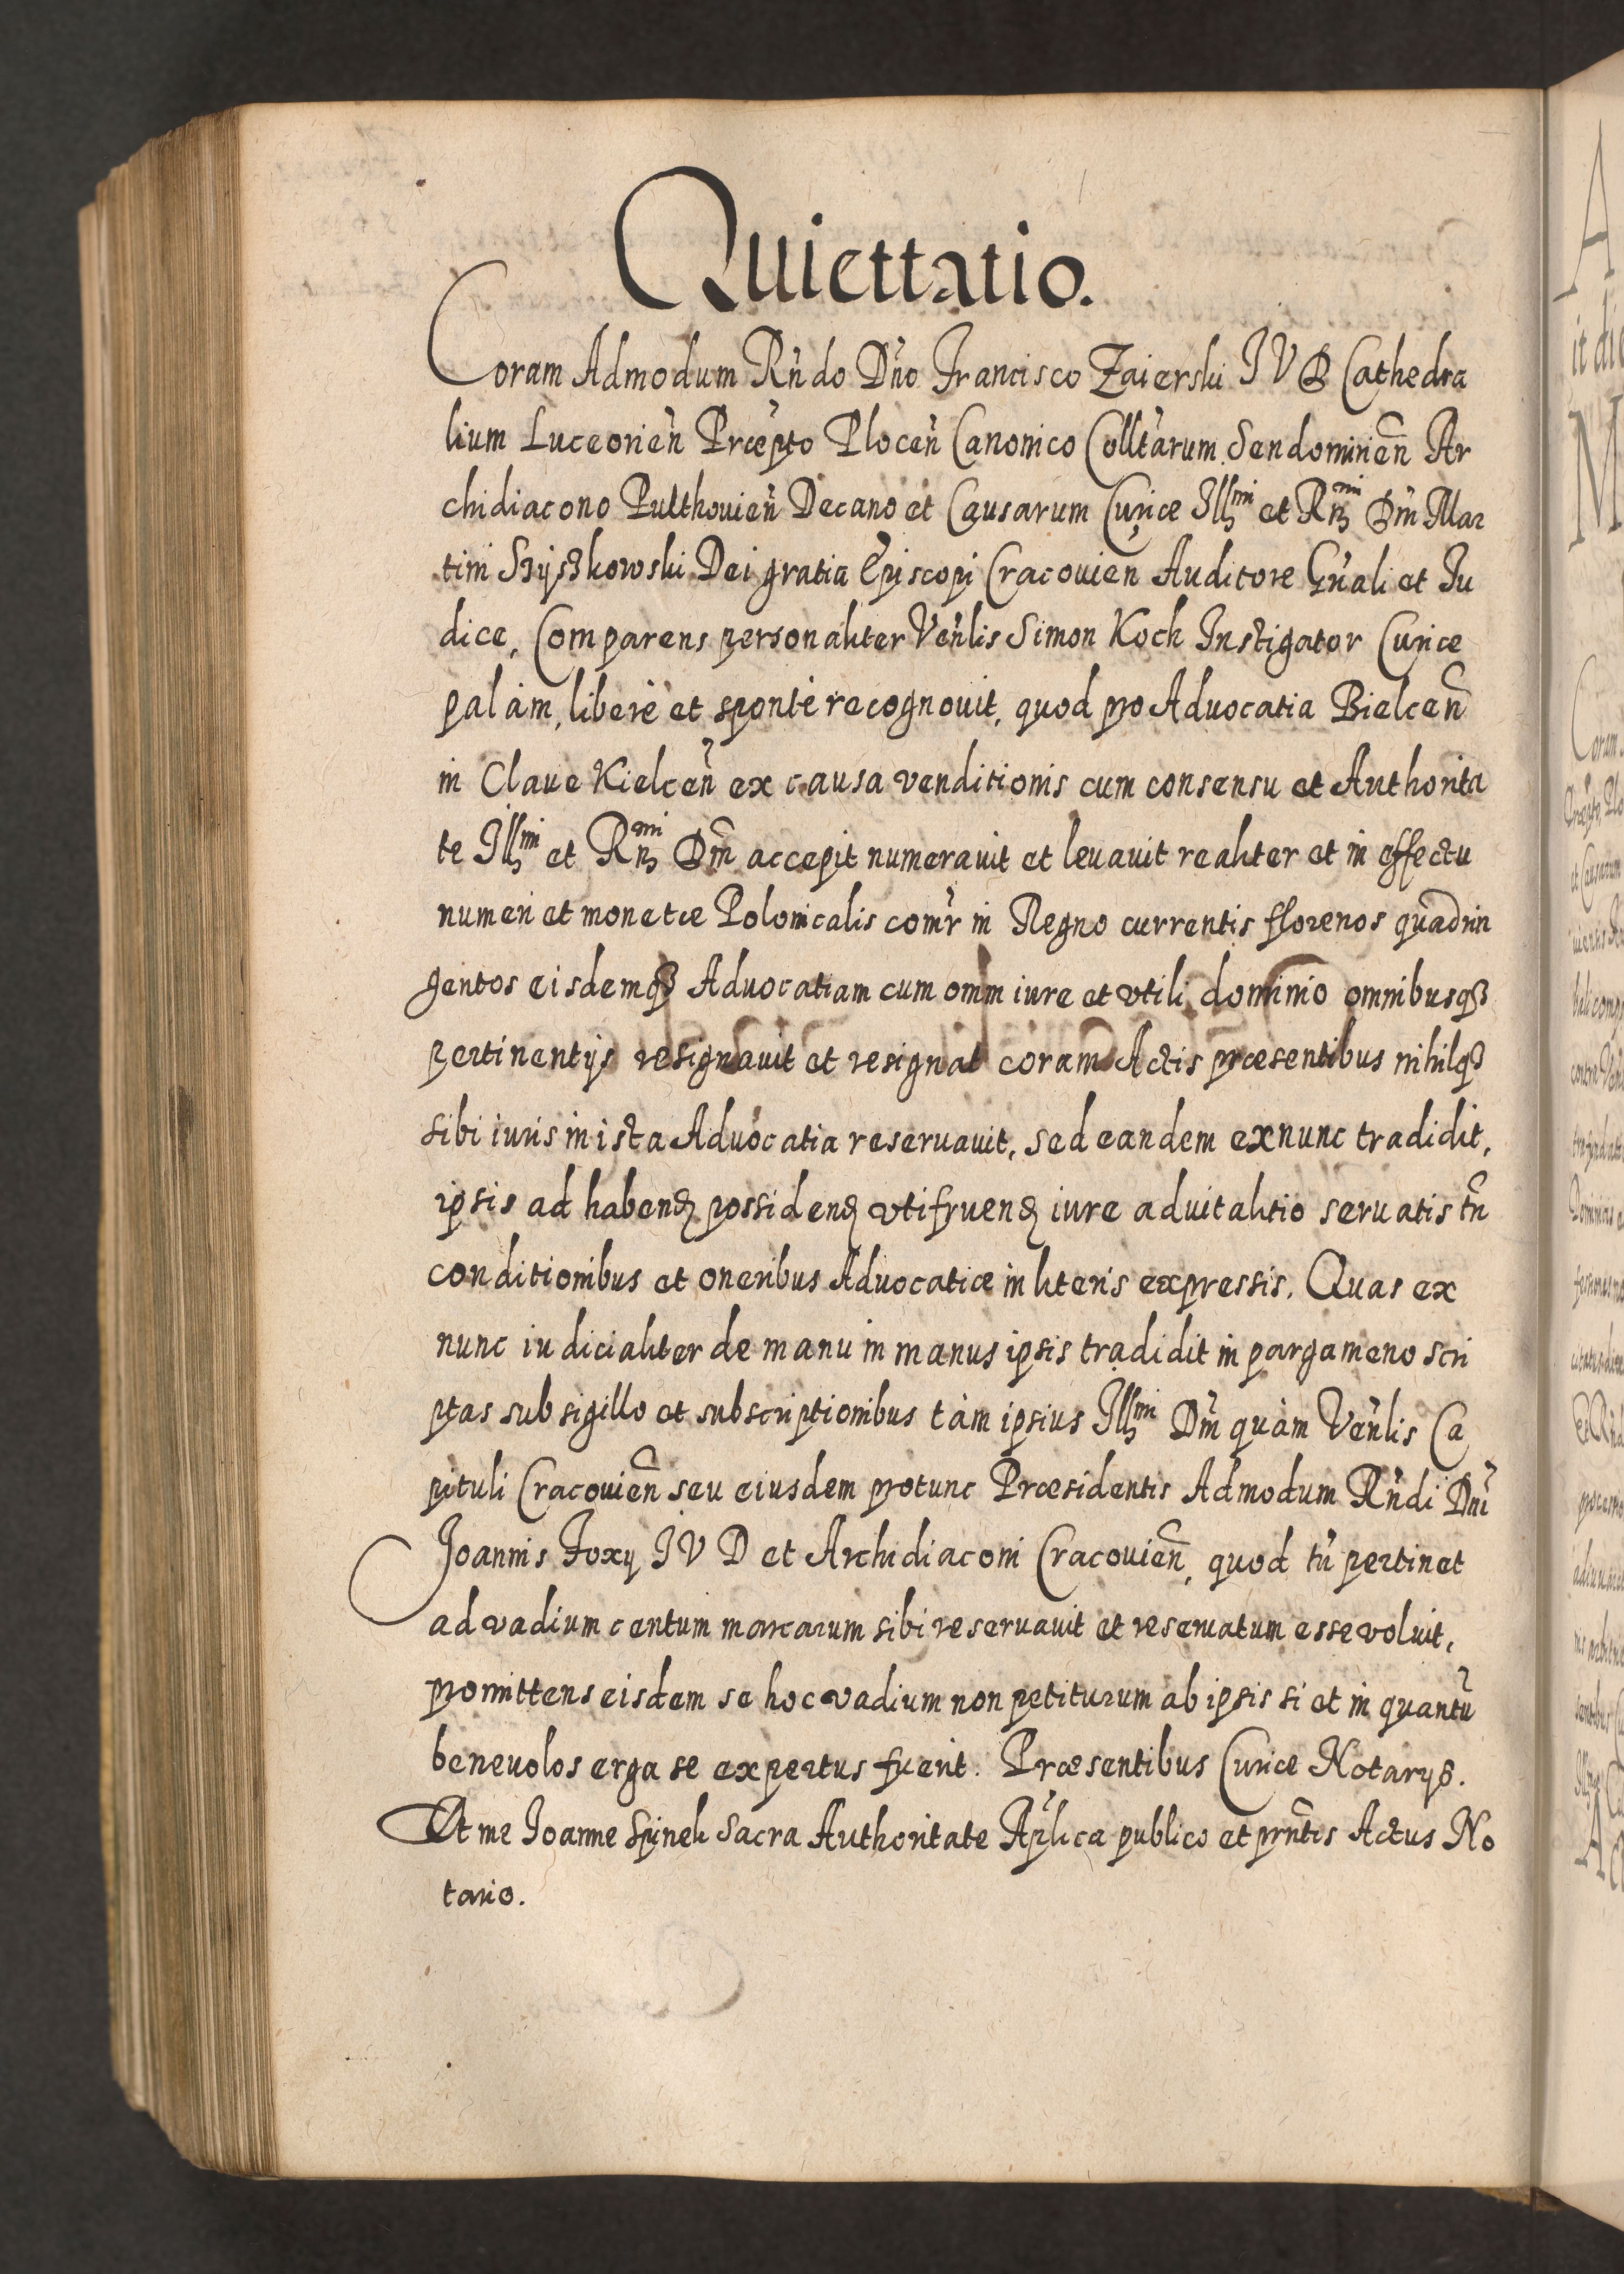 Quiettatio.
Coram Admodum Rn̄do Dn̄o Francisco Zaierski I V D Cathedra
lium Luceorien̄ Præpto Plocen̄ Canonico Colltarum Sendomirien̄ Ar
chidiacono Pulthouien̄ Decano et Causarum Curiæ Illmi et Rmi Dn̄i Mar
tini Szyszkowski Dei gratia Episcopi Cracouien Auditore Gn̄ali et Iu
dice, Comparens personaliter Ven̄lis Simon Koch Instigator Curiæ
palàm, liberè et spontè recognouit, quod pro Aduocatia Bielcen̄
in Claue Kielcen̄ ex causa venditionis cum consensu et Authorita
te Illmi et Rmi Dn̄i accepit numerauit et leuauit realiter et in effectu
numeri et monetæ Polonicalis com̄r in Regno currentis florenos quadrin
gentos eisdemqȝ Aduocatiam cum omni iure et vtili dominio omnibusqȝ
pertinentijs resignauit et resignat coram Actis præsentibus nihilqȝ
sibi iuris in ista Aduocatia reseruauit, sed eandem exnunc tradidit,
ipsis ad habenđ possidenđ vtifruenđ iure aduitalitio seruatis tn̄
conditionibus et oneribus Aduocatiæ in literis expressis. Quas ex
nunc iudicialiter de manu in manus ipsis tradidit in pargameno scri
ptas sub sigillo et subscriptionibus tàm ipsius Illmi Dn̄i quàm Ven̄lis Ca
pituli Cracouien̄ seu eiusdem protunc Præsidentis Admodum Rn̄di Dn̄i
Joannis Foxy I V D et Archidiaconi Cracouien̄, quod tn̄ pertinet
ad vadium centum marcarum sibi reseruauit et reseruatum esse voluit,
promittens eisdem se hoc vadium non petiturum ab ipsis si et in quantū
beneuolos erga se expertus fuerit. Præsentibus Curiæ Notarys.
Et me Joanne Spinek Sacra Authoritate Aplica publico et prn̄tis Actus No
tario.